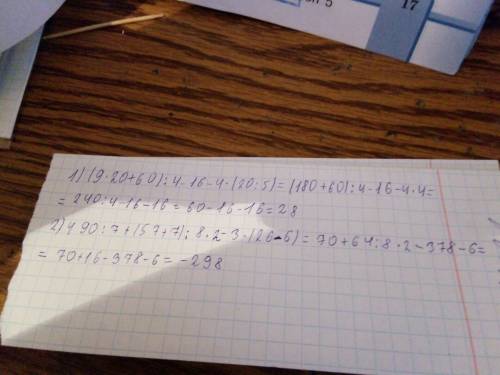 17
1) (9·20+60):4-16-4·(20:5)=(180+60):4-16-4·4=
= 240:4-16-16=60-16-16=28
2) 490:7+(57+7):8·2-3·(26-6)=70+64:8·2-378-6=
= 70+16-378-6=-298